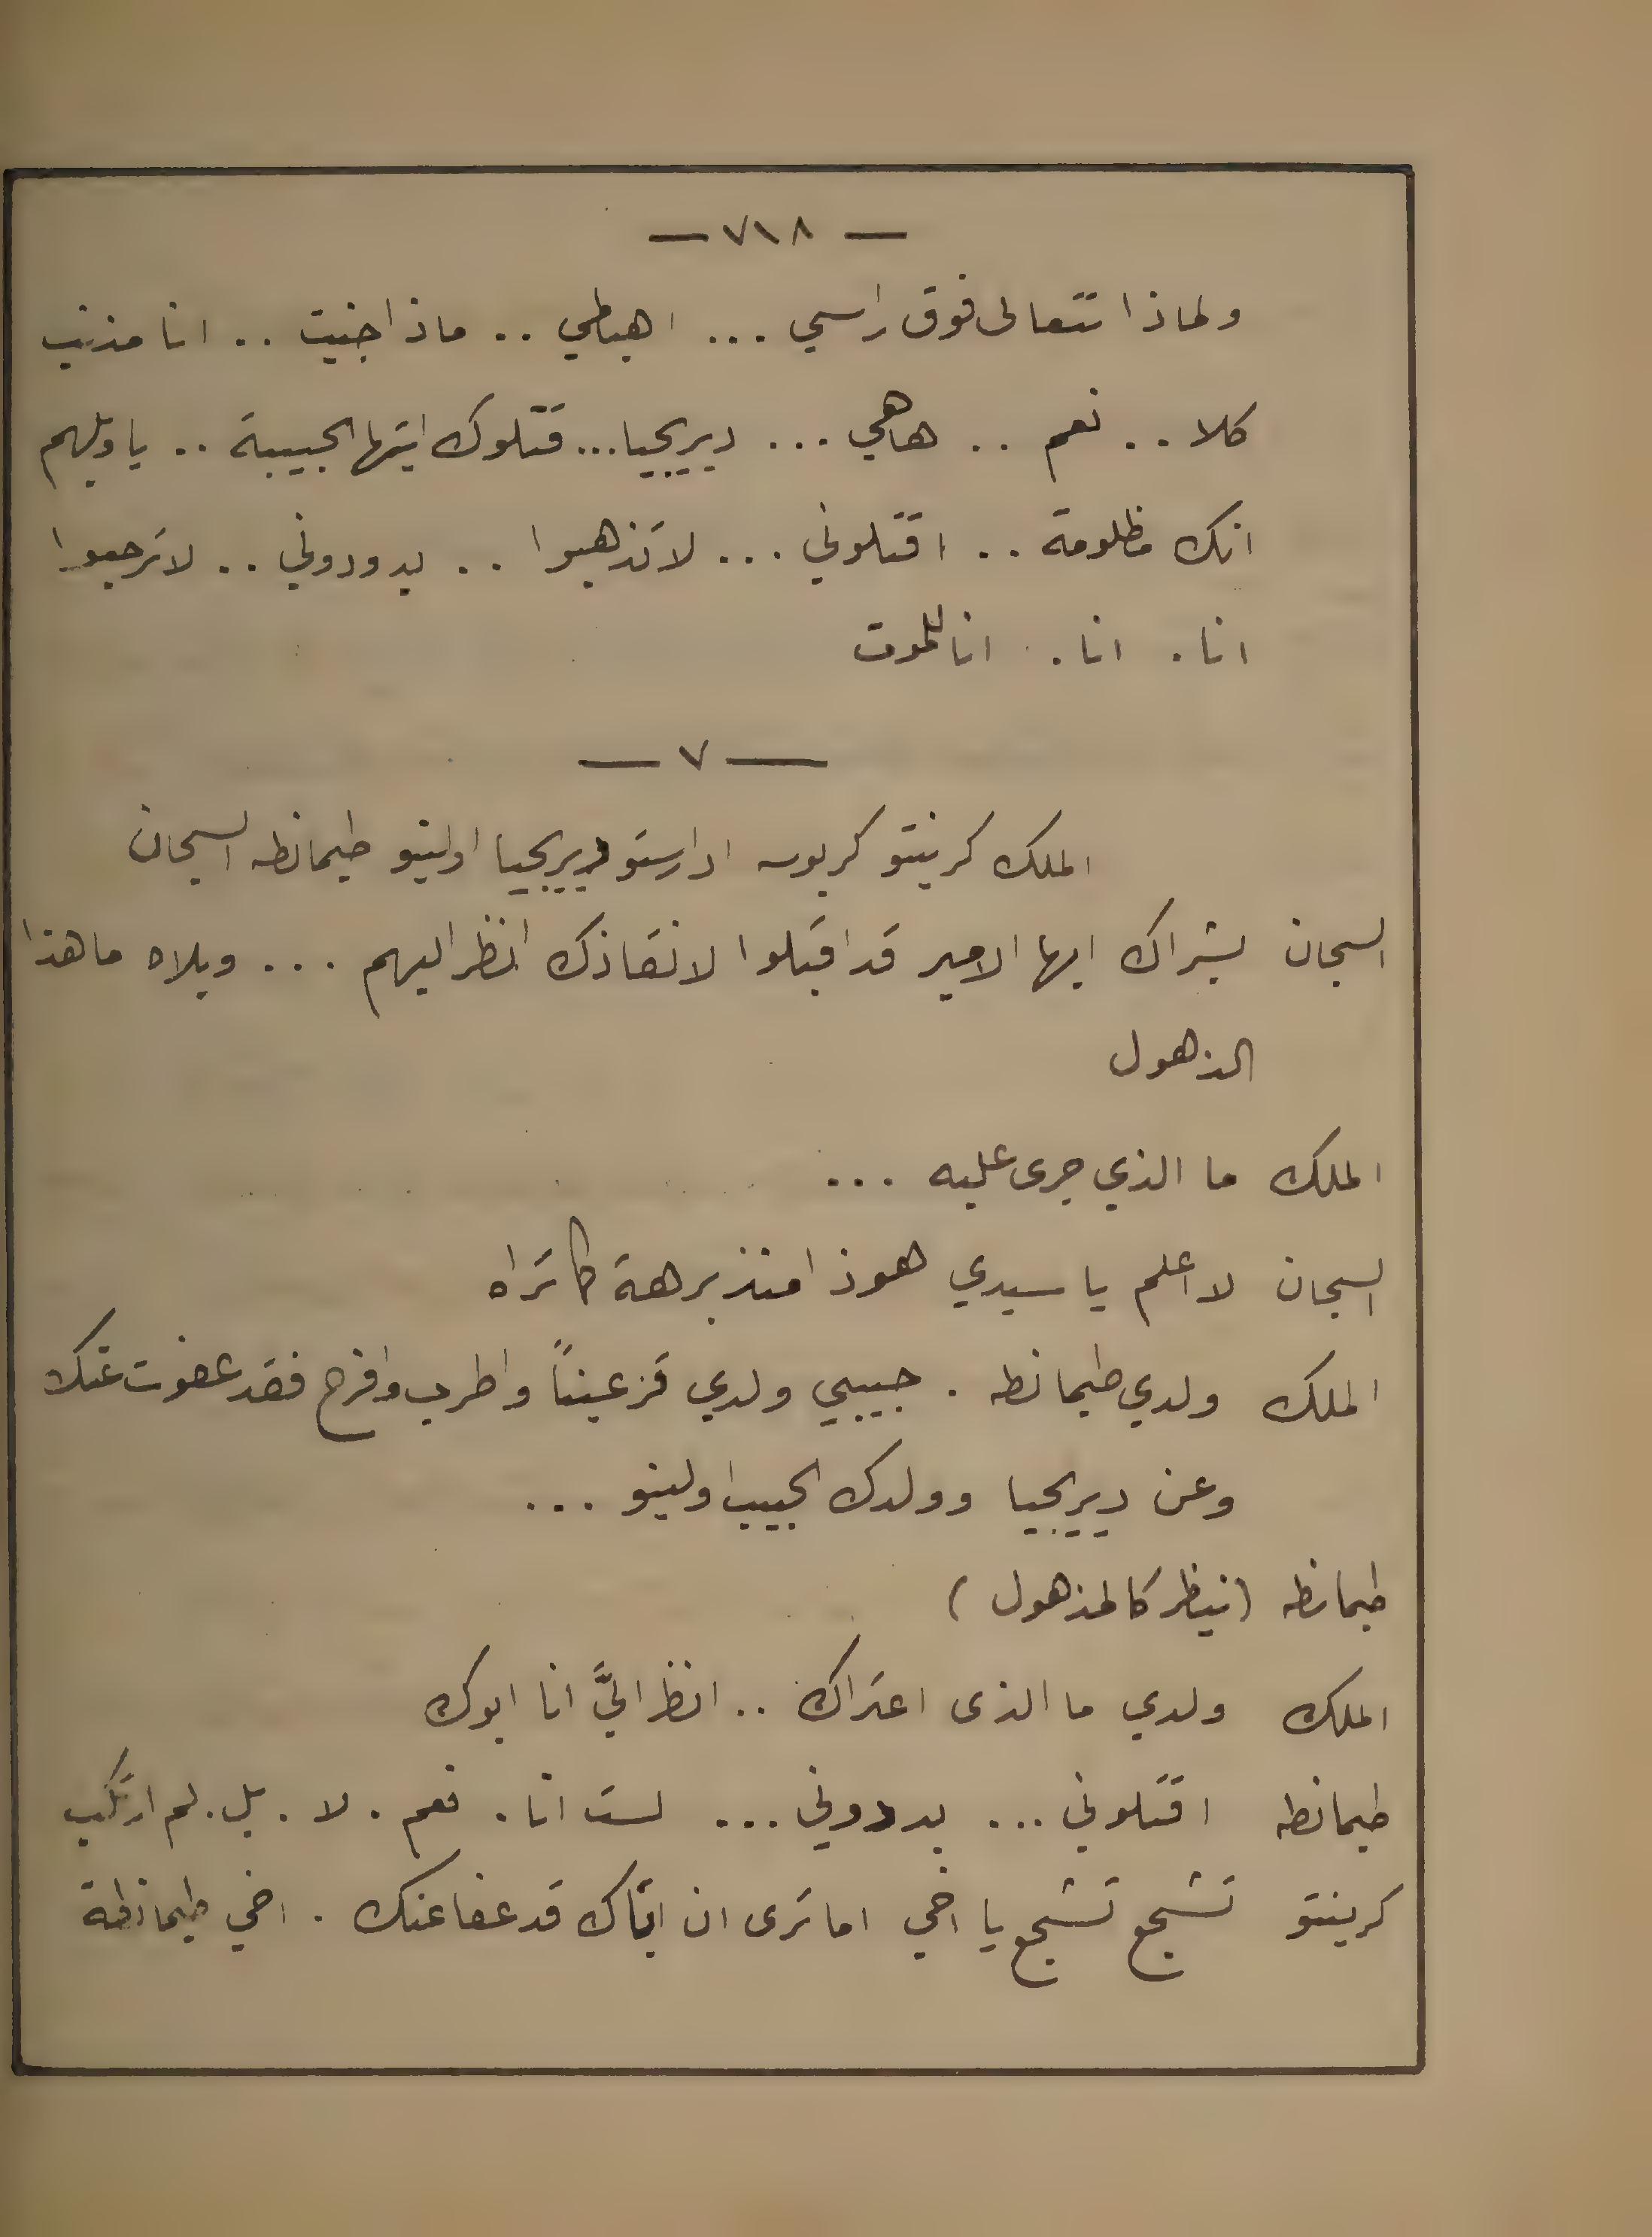 — ٧١٨ —
ولماذا تتعالى فوق راسي ... اهبطي .. ماذا جنيت .. انا مذنب
كلا .. نعم .. هاهي ... ديريجيا ... قتلوك ايتها الحبيبة .. يا ويلهم
انك مظلومة .. اقتلوني ... لا تذهبوا .. بدودوني .. لا ترحبوا
انا . انا . انا للموت
— ٧ —
الملك كرينتو كربوس ادارستو ديريجيا اولينو طيمانطه السجان
السجان بشراك ايها الامير قد اقبلوا لانقاذك انظر اليهم ... ويلاه ما هذا
الذهول
الملك ما الذي جرى عليه ...
السجان لا اعلم يا سيدي هوذا منذ برهة كما تراه
الملك ولدي طيمانطه . حبيبي ولدي قر عيناً واطرب وافرح فقد عفوت عنك
وعن ديريجيا وولدك الحبيب اولينو ...
طيمانطه (ينظر كالمذهول)
الملك ولدي ما الذى اعتراك .. انظر اليَّ انا ابوك
طيمانطه اقتلوني ... بددوني ... لست انا . نعم . لا . بل . لم ارتكب
كرينتو تشجع تشجع يا اخي اما ترى ان اباك قد عفا عنك . اخي طيمانطة